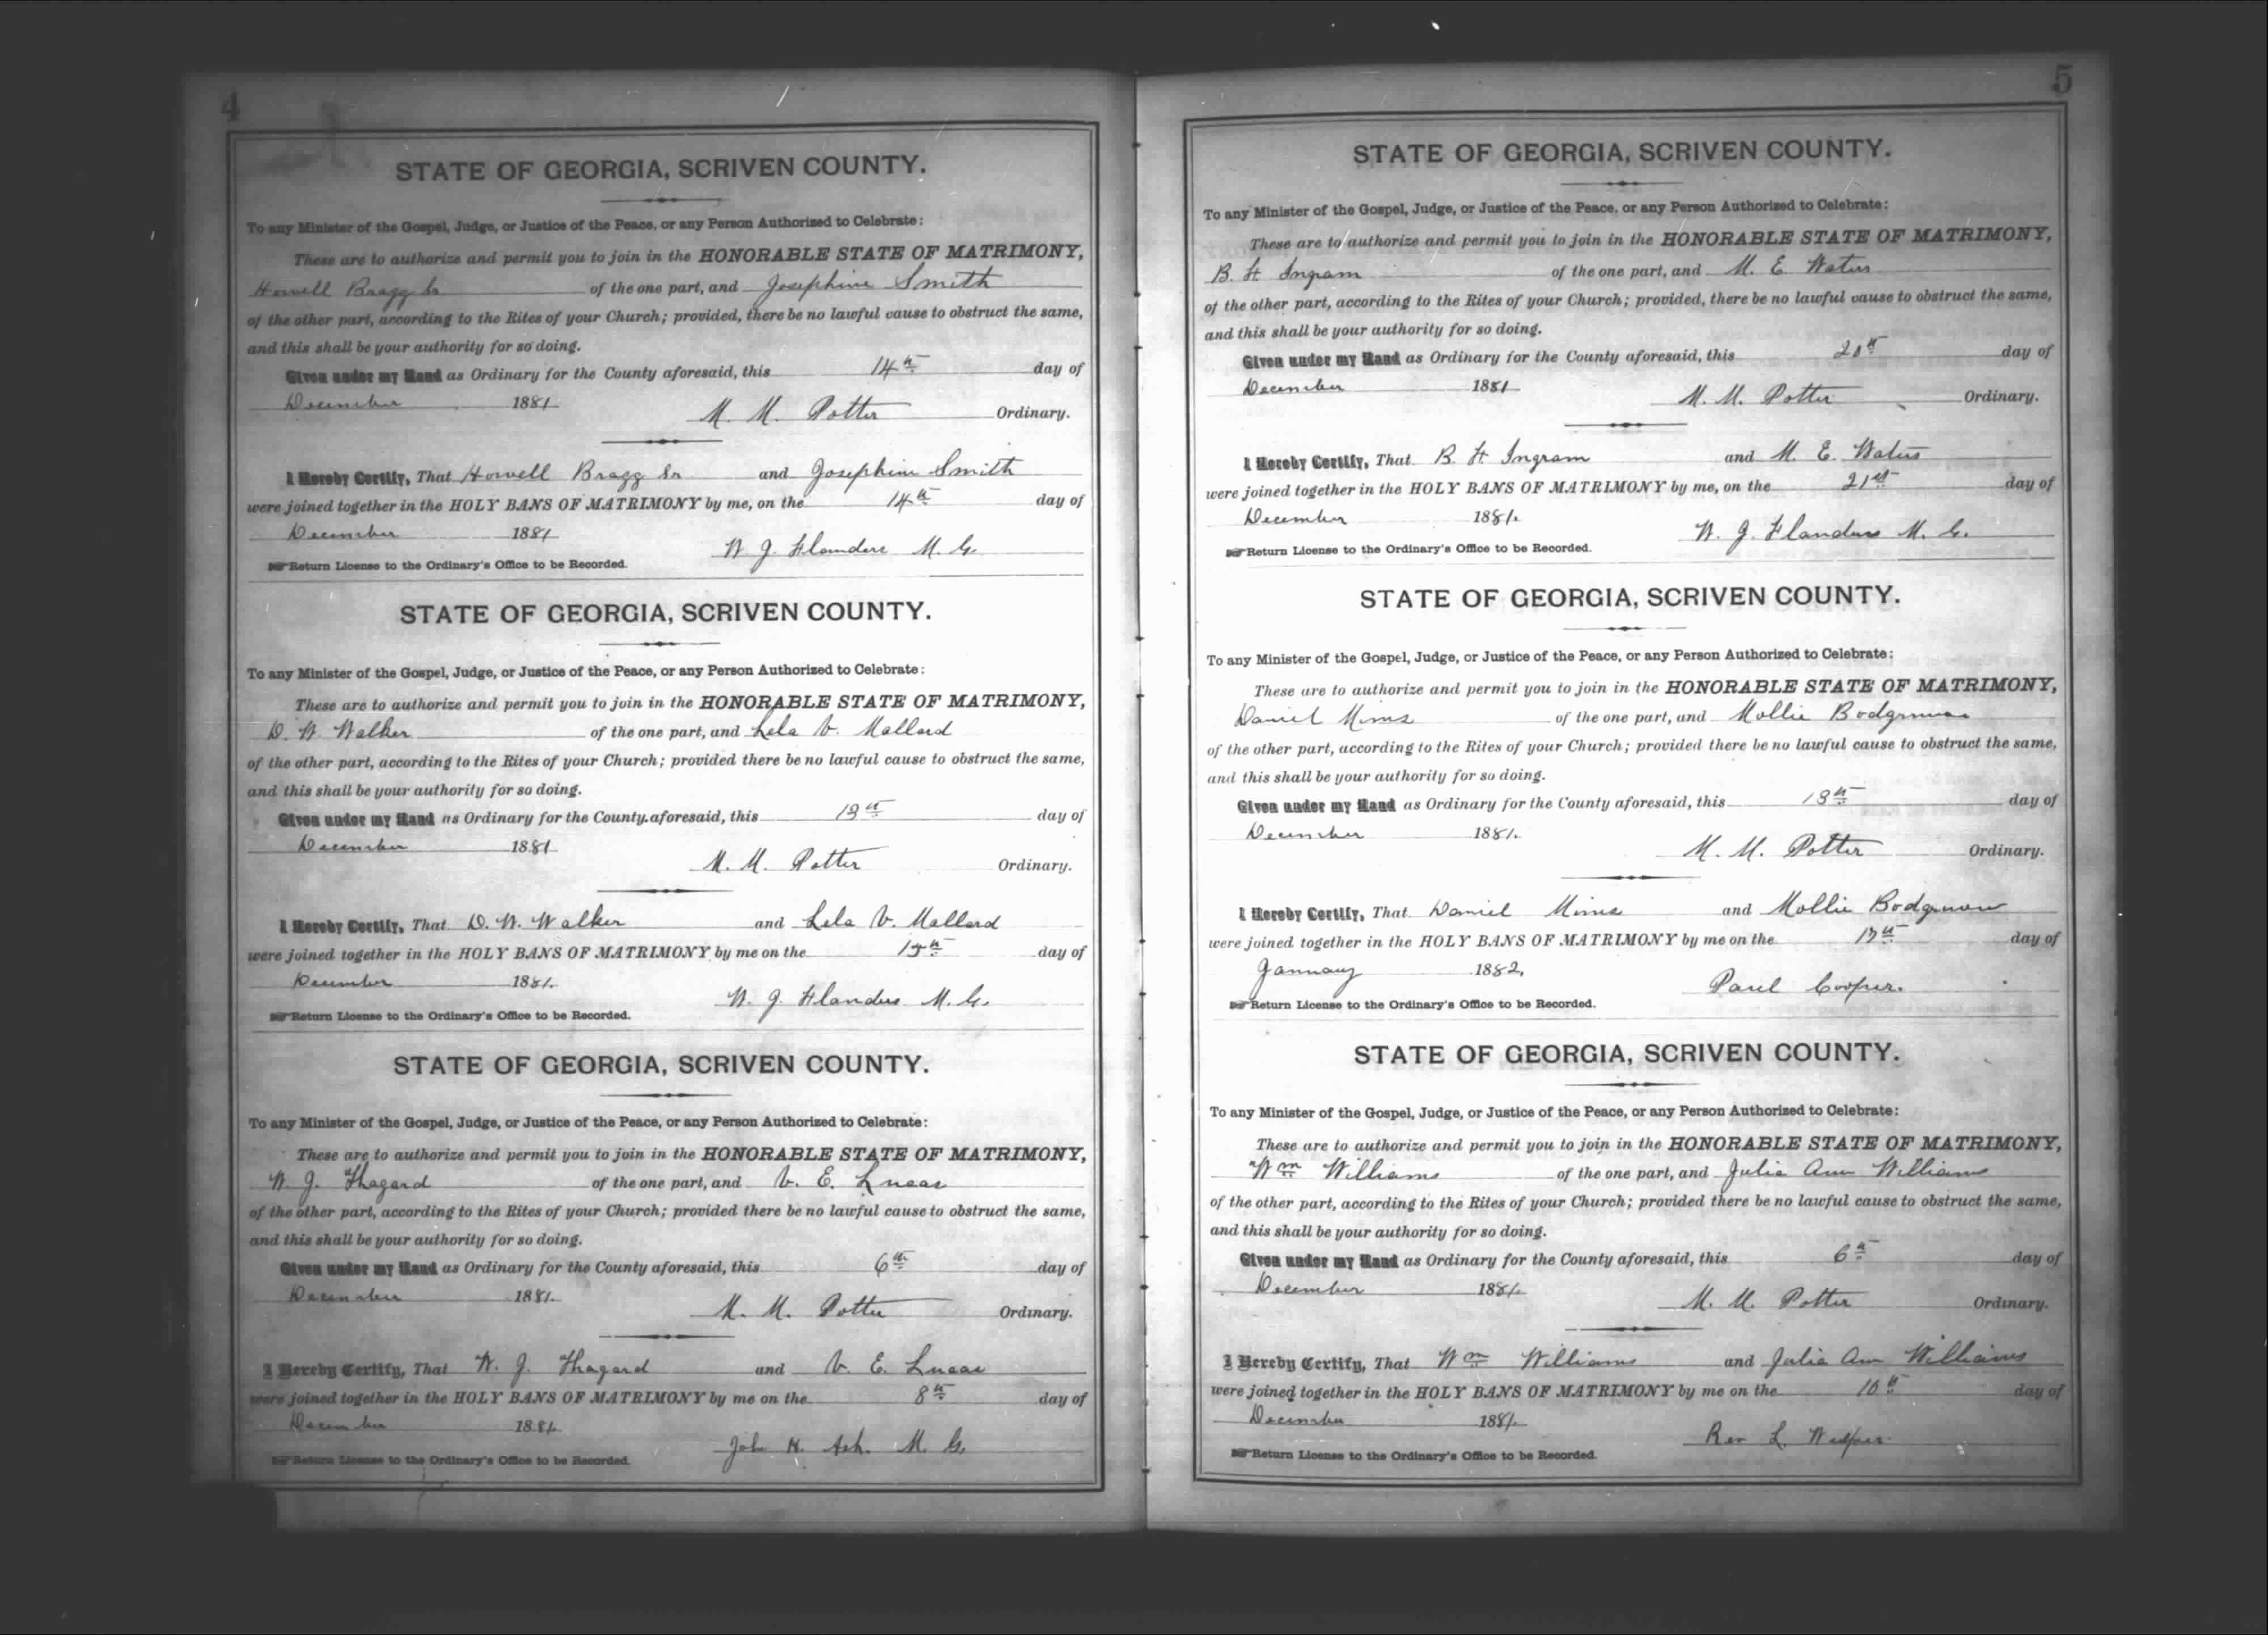 4
STATE OF GEORGIA, SCRIVEN COUNTY.
To any Minister of the Gospel, Judge, or Justice of the Peace, or any Person Authorized to Celebrate:
These are to authorize and permit you to join in the HONORABLE STATE OF MATRIMONY,
Howell Bragg Sr of the one part, and Josephine Smith
of the other part, according to the Rites of your Church; provided, there be no lawful cause to obstruct the same,
and this shall be your authority for so doing.
Given under my Hand as Ordinary for the County aforesaid, this 14th day of
December 1881 M. M. Potter Ordinary.
I Hereby Certify, That Howell Bragg Sr and Josephine Smith
were joined together in the HOLY BANS OF MATRIMONY by me, on the 14th day of
December 1881
W. J. Flanders M. G.
Return License to the Ordinary's Office to be Recorded.
STATE OF GEORGIA, SCRIVEN COUNTY.
To any Minister of the Gospel, Judge, or Justice of the Peace, or any Person Authorized to Celebrate:
These are to authorize and permit you to join in the HONORABLE STATE OF MATRIMONY,
D. W. Walker of the one part, and Lela V. Mallard
of the other part, according to the Rites of your Church; provided there be no lawful cause to obstruct the same,
and this shall be your authority for so doing.
Given under my Hand as Ordinary for the County aforesaid, this 13th day of
December 1881
M. M. Potter Ordinary.
I Hereby Certify, That D. W. Walker and Lela V. Mallard
were joined together in the HOLY BANS OF MATRIMONY by me on the day of
December 1881.
W. J. Flanders M. G.
Return License to the Ordinary's Office to be Recorded.
STATE OF GEORGIA, SCRIVEN COUNTY.
To any Minister of the Gospel, Judge, or Justice of the Peace, or any Person Authorized to Celebrate:
These are to authorize and permit you to join in the HONORABLE STATE OF MATRIMONY,
W. J. Thagard of the one part, and V. E. Lucas
of the other part, according to the Rites of your Church; provided there be no lawful cause to obstruct the same,
and this shall be your authority for so doing.
Given under my Hand as Ordinary for the County aforesaid, this 6th day of
December 1881.
M. M. Potter Ordinary.
I Hereby Certify, That W. J. Thagard and V. E. Lucas
were joined together in the HOLY BANS OF MATRIMONY by me on the 8th day of
December 1881.
John H. Ash. M. G.
Return License to the Ordinary's Office to be Recorded.
5
STATE OF GEORGIA, SCRIVEN COUNTY.
To any Minister of the Gospel, Judge, or Justice of the Peace, or any Person Authorized to Celebrate:
These are to authorize and permit you to join in the HONORABLE STATE OF MATRIMONY,
B. H. Ingram of the one part, and M. E. Waters
of the other part, according to the Rites of your Church; provided, there be no lawful cause to obstruct the same,
and this shall be your authority for so doing.
Given under my Hand as Ordinary for the County aforesaid, this 20th day of
December 1881
M. M. Potter Ordinary.
I Hereby Certify, That B. H. Ingram and M. E. Waters
were joined together in the HOLY BANS OF MATRIMONY by me, on the 21st day of
December 1881.
W. J. Flanders M. G.
Return License to the Ordinary's Office to be Recorded.
STATE OF GEORGIA, SCRIVEN COUNTY.
To any Minister of the Gospel, Judge, or Justice of the Peace, or any Person Authorized to Celebrate:
These are to authorize and permit you to join in the HONORABLE STATE OF MATRIMONY,
Daniel Mims of the one part, and Mollie
of the other part, according to the Rites of your Church; provided there be no lawful cause to obstruct the same,
and this shall be your authority for so doing.
Given under my Hand as Ordinary for the County aforesaid, this 13th day of
December 1881.
M. M. Potter Ordinary.
I Hereby Certify, That Daniel Mims and Mollie
were joined together in the HOLY BANS OF MATRIMONY by me on the day of
January 1882,
Paul Cooper.
Return License to the Ordinary's Office to be Recorded.
STATE OF GEORGIA, SCRIVEN COUNTY.
To any Minister of the Gospel, Judge, or Justice of the Peace, or any Person Authorized to Celebrate:
These are to authorize and permit you to join in the HONORABLE STATE OF MATRIMONY,
Wm Williams of the one part, and Julia Ann Williams
of the other part, according to the Rites of your Church; provided there be no lawful cause to obstruct the same,
and this shall be your authority for so doing.
Given under my Hand as Ordinary for the County aforesaid, this 6th day of
December 1881.
M. M. Potter Ordinary.
I Hereby Certify, That Wm Williams and Julia Ann Williams
were joined together in the HOLY BANS OF MATRIMONY by me on the 10th day of
December 1881.
Rev L.
Return License to the Ordinary's Office to be Recorded.